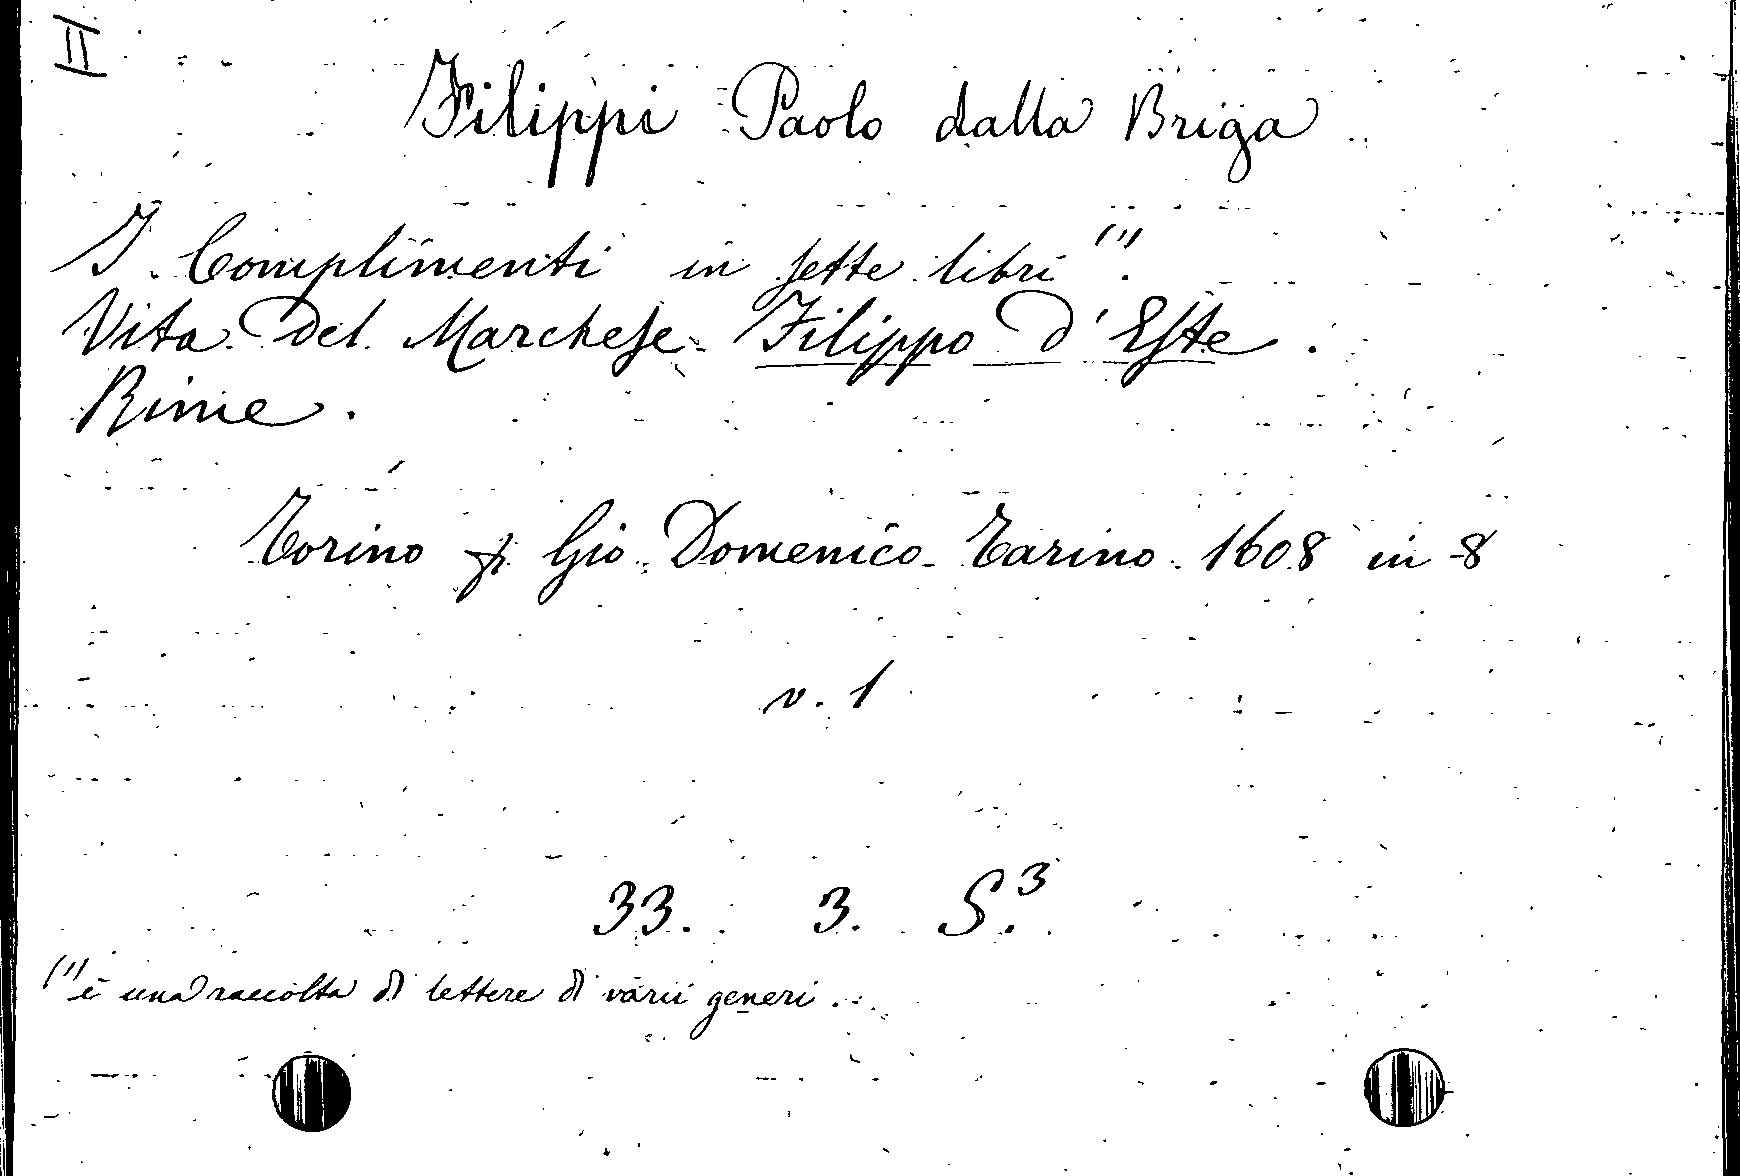 II
Filippi Paolo dalla Briga
I Complimenti in sette libri (1).
Vita del Marchese Filippo d'Este.
Rime.
Torino p. Gio Domenico Tarino 1608 in 8
v. 1
33. 3. S.3
(1) è una raccolta di lettere di varii generi.